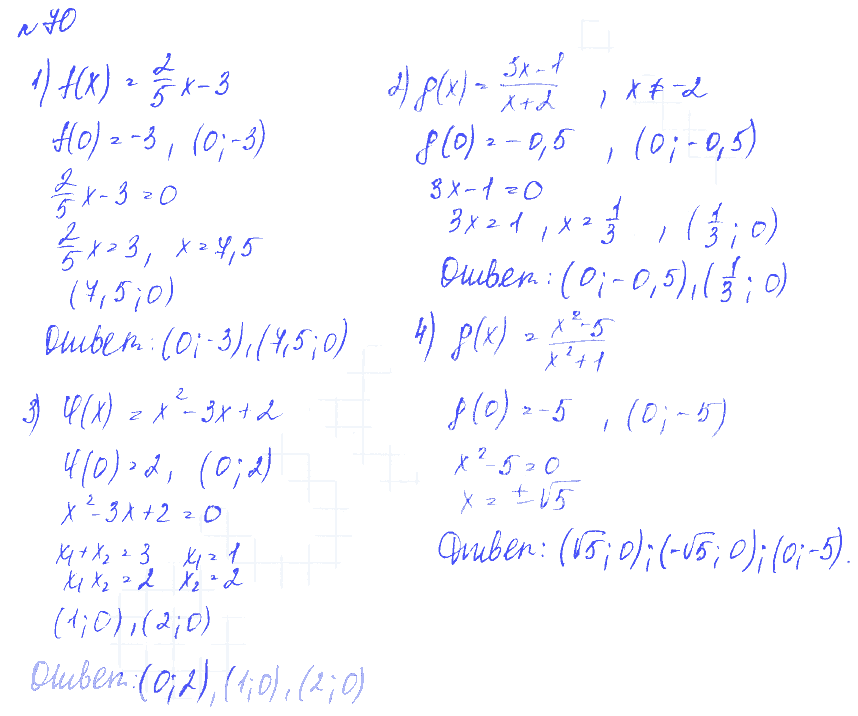 №70
1) f(x) = 2/5 x - 3
f(0) = -3, (0; -3)
2/5 x - 3 = 0
2/5 x = 3, x = 7,5
(7,5; 0)
Ответ: (0; -3), (7,5; 0)
2) g(x) = (3x - 1)/(x + 2), x ≠ -2
g(0) = -0,5, (0; -0,5)
3x - 1 = 0
3x = 1, x = 1/3, (1/3; 0)
Ответ: (0; -0,5), (1/3; 0)
3) φ(x) = x² - 3x + 2
φ(0) = 2, (0; 2)
x² - 3x + 2 = 0
x₁ + x₂ = 3 x₁ = 1
x₁ x₂ = 2 x₂ = 2
(1; 0), (2; 0)
Ответ: (0; 2), (1; 0), (2; 0)
4) g(x) = (x² - 5)/(x² + 1)
g(0) = -5, (0; -5)
x² - 5 = 0
x = ±√5
Ответ: (√5; 0); (-√5; 0); (0; -5).